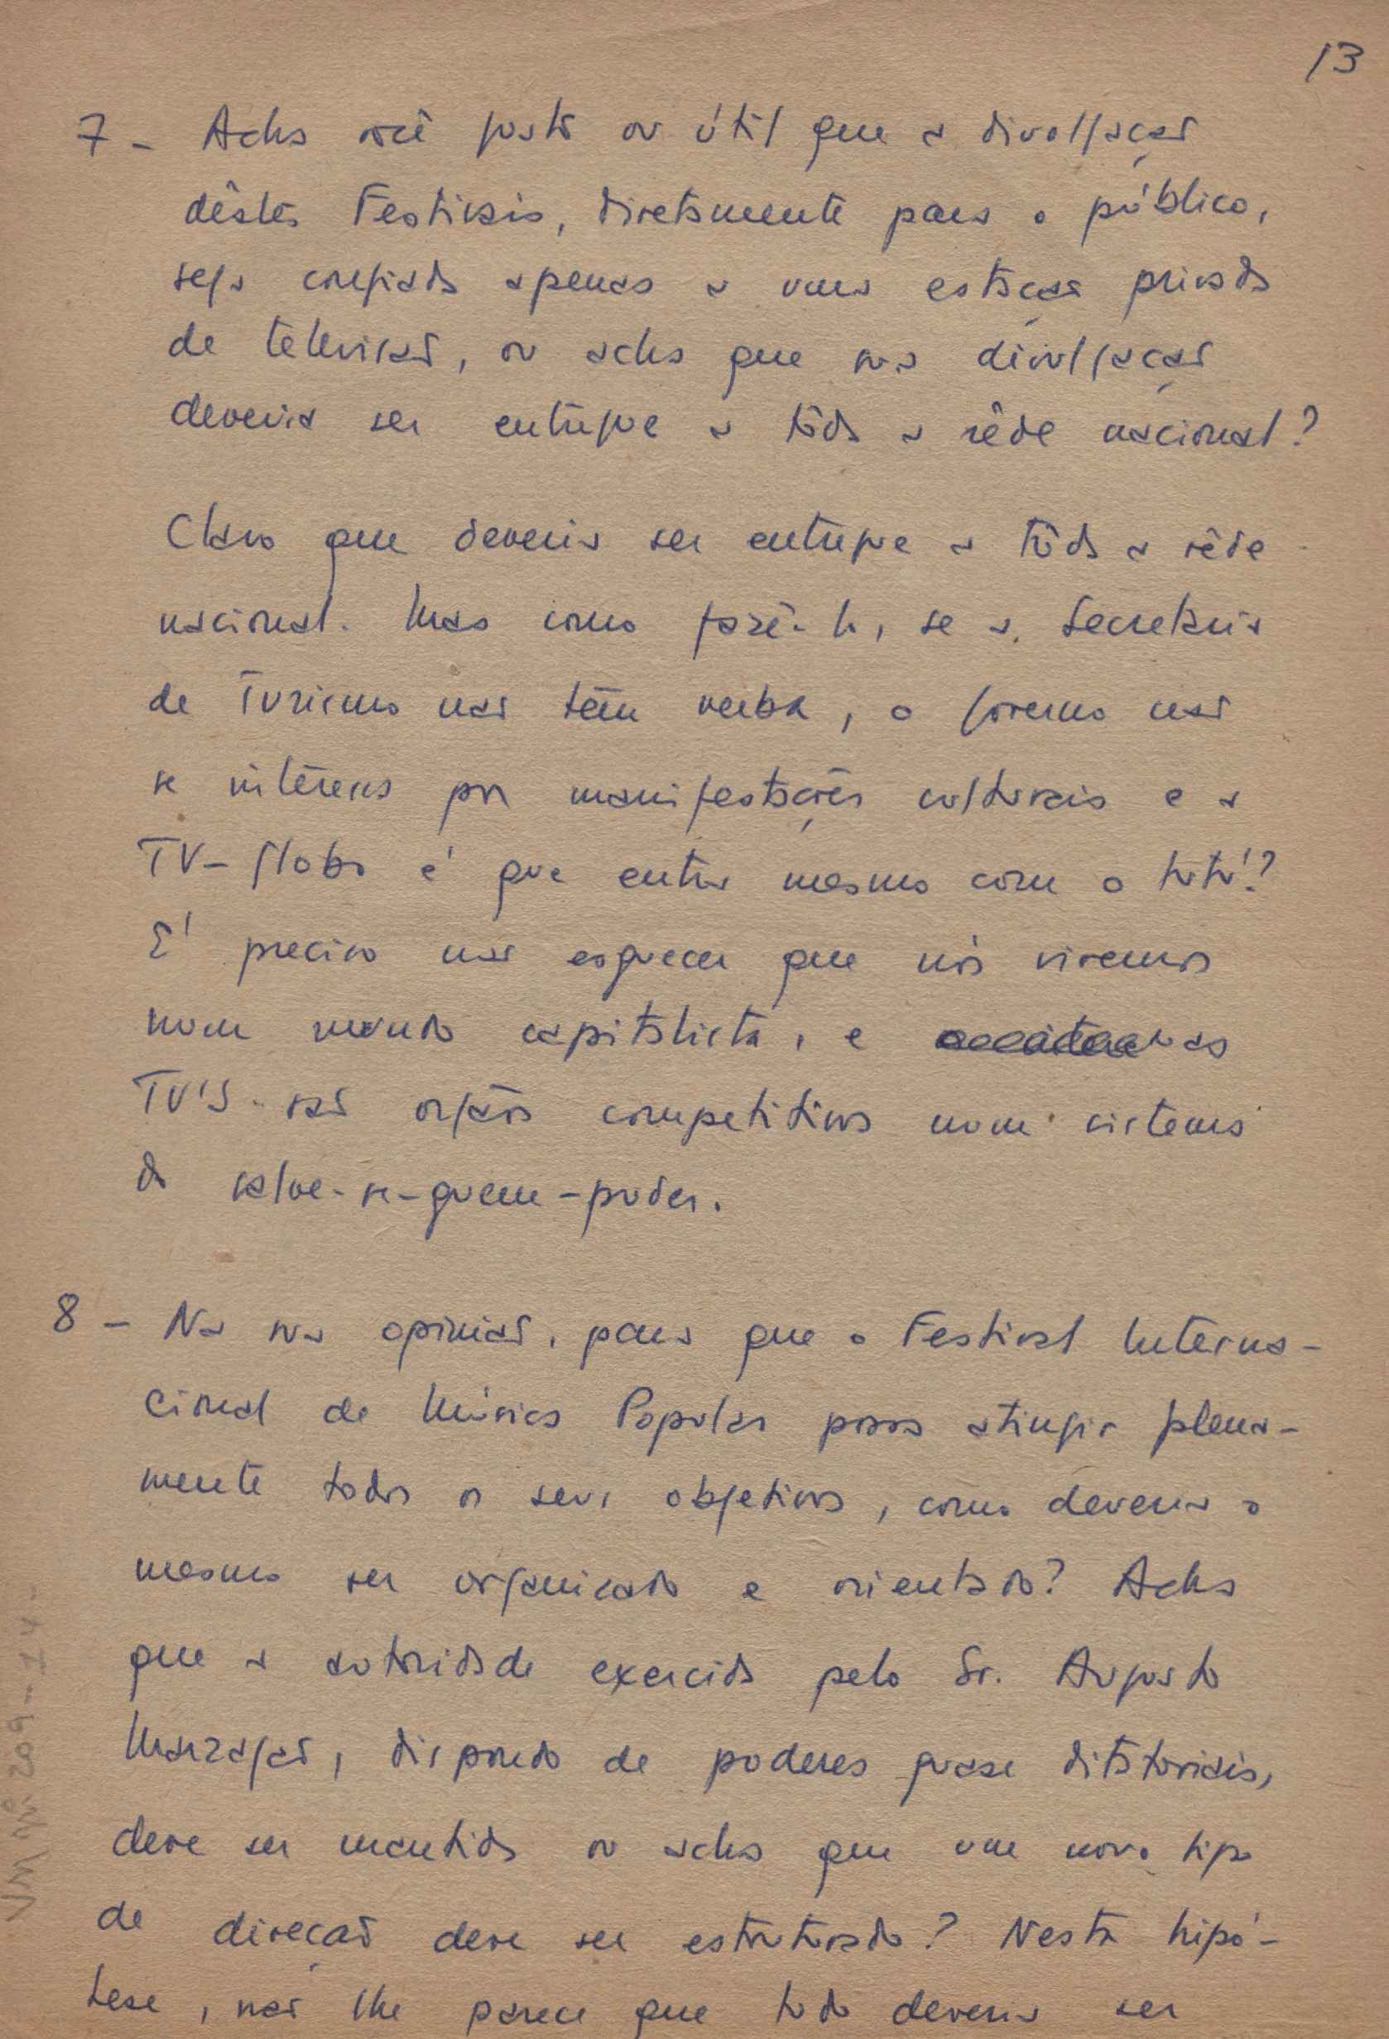 13
7 - Acha você justo ou útil que a divulgação
dêstes Festivais, diretamente para o público,
seja confiada apenas a uma estação privada
de televisão, ou acha que sua divulgação
deveria ser entregue a tôda a rêde nacional?
Claro que deveria ser entregue a tôda a rêde
nacional. Mas como fazê-lo, se a Secretaria
de Turismo não têm verba, o governo não
se interessa por manifestações culturais e a
TV-Globo é que entra mesmo com o tutú?
É preciso não esquecer que nós vivemos
num mundo capitalista, e as
TV'S são orgãos competitivos num sistema
do salve-se-quem-puder.
8 - Na sua opinião, para que o Festival Interna-
cional de Música Popular possa atingir plena-
mente todos os seus objetivos, como deveria o
mesmo ser organizado e orientado? Acha
que a autoridade exercida pelo Sr. Augusto
Marzagão, dispondo de poderes quase ditatoriais,
deve ser mantida ou acha que um novo tipo
de direção deve ser estruturado? Nesta hipó-
tese, não lhe parece que tudo deveria ser
VM Nº 209-14